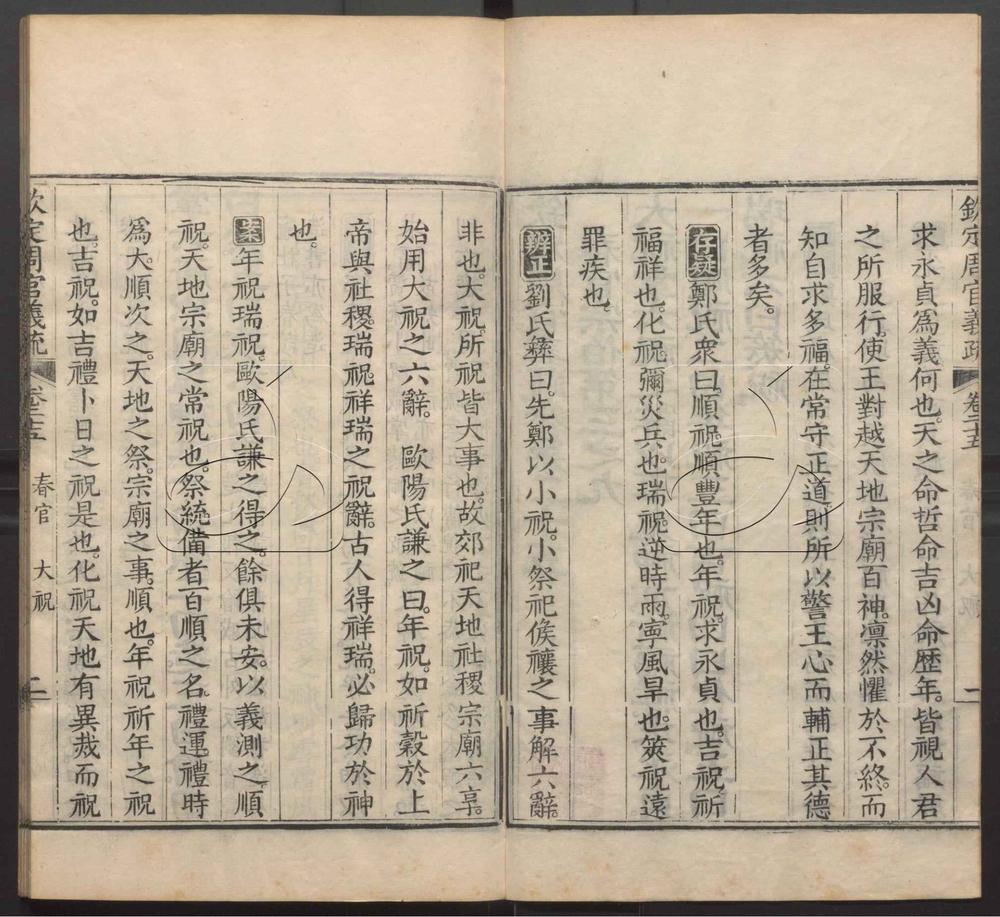 欽定周官義疏 卷二十五 一
求永貞為義何也天之命哲命吉凶命歷年皆視人君
之所服行使王對越天地宗廟百神凛然懼於不終而
知自求多福在常守正道則所以警王心而輔正其德
者多矣
存疑鄭氏衆曰順祝順豐年也年祝求永貞也吉祝祈
福祥也化祝彌災兵也瑞祝逆時雨寧風旱也筴祝遠
罪疾也
辨正劉氏彝曰先鄭以小祝小祭祀侯禳之事解六辭
非也大祝所祝皆大事也故郊祀天地社稷宗廟六享
始用大祝之六辭 歐陽氏謙之曰年祝如祈穀於上
帝與社稷瑞祝祥瑞之祝辭古人得祥瑞必歸功於神
也
案年祝瑞祝歐陽氏謙之得之餘俱未安以義測之順
祝天地宗廟之常祝也祭統備者百順之名禮運禮時
爲大順次之天地之祭宗廟之事順也年祝祈年之祝
也吉祝如吉禮卜日之祝是也化祝天地有異烖而祝
欽定周官義疏 卷二十五 春官 大祝 二